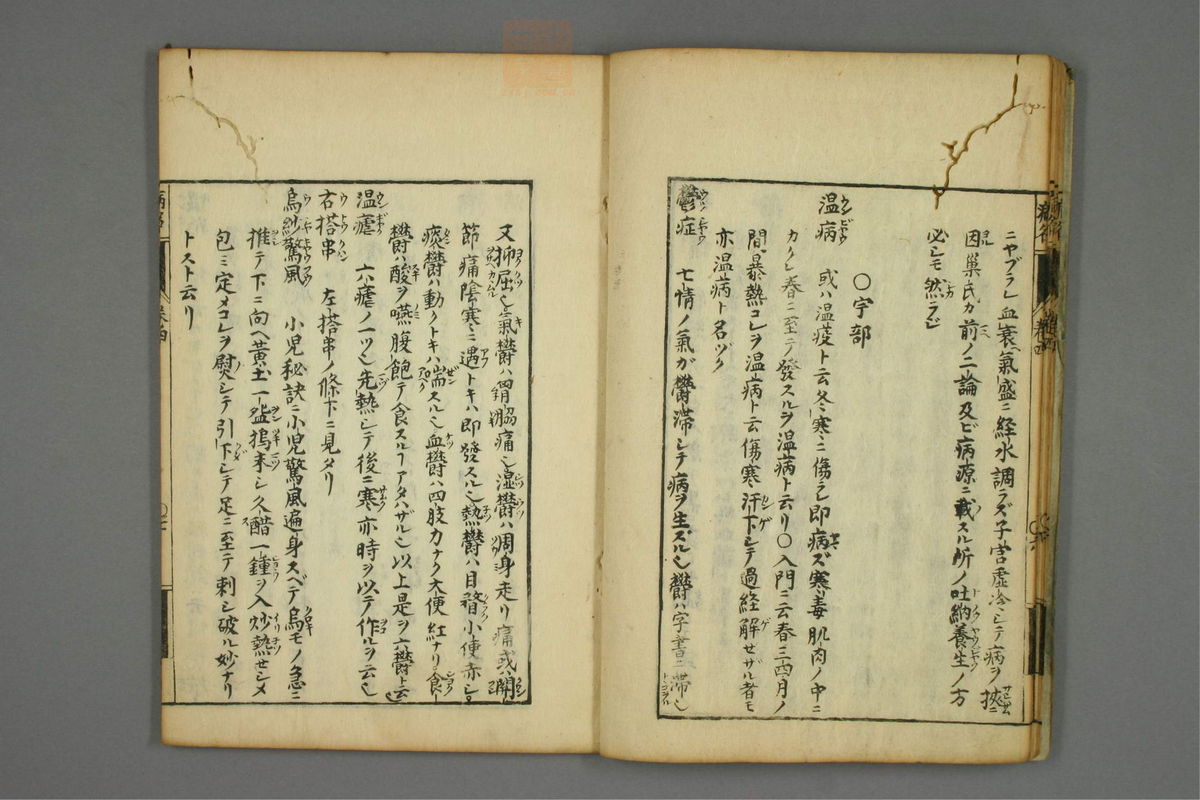 ニヤブラレ血衰氣盛ニ経水調ラズ子宮虚冷シテ病ヲ挾ニ
因ル巣氏カ前ノ二論及ビ病源ニ載スル所ノ吐納養生ノ方
必シモ然ラズ
〇宇部
温病 或ハ温疫ト云冬寒ニ傷ラレ即病ズ寒毒肌肉ノ中ニ
カクレ春ニ至テ發スルヲ温病ト云リ〇入門ニ云春三四月ノ
間暴熱コレヲ温病ト云傷寒汗下シテ過経解セザル者モ
亦温病ト名ヅク
鬱症 七情ノ氣ガ鬱滞シテ病ヲ生ズル也鬱ハ字書ニ滞也
又抑屈也氣鬱ハ胸脇痛シ湿鬱ハ周身走リ痛或ハ關
節痛陰寒ニ遇トキハ即發スル也熱鬱ハ目瞀小便赤シ
痰鬱ハ動クトキハ喘スル也血鬱ハ四肢力ナク大便紅ナリ食
鬱ハ酸ヲ嚥腹飽テ食スルヿアタハザル也以上是ヲ六鬱ト云
温瘧 六瘧ノ一ツ也先熱シテ後ニ寒亦時ヲ以テ作ルヲ云也
右搭串 左搭串ノ條下ニ見タリ
烏紗驚風 小児秘訣ニ小児驚風遍身スベテ烏モノ急ニ
推テ下ニ向ヘ黄土一盌搗末シ久醋一鍾ヲ入炒熱セシメ
包ミ定メコレヲ熨シテ引下シテ足ニ至テ刺シ破ル妙ナリ
トスト云リ